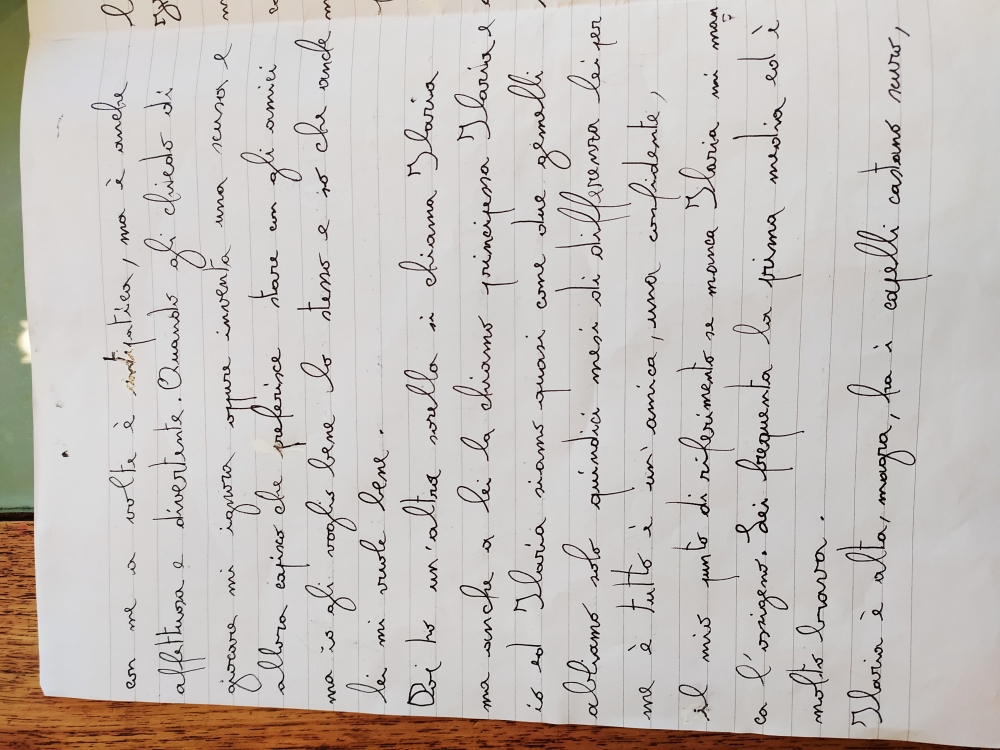 con me a volte è antipatica, ma è anche
affettuosa e divertente. Quando gli chiedo di
giocare mi ignora oppure inventa una scusa e
allora capisco che preferisce stare con gli amici
ma io gli voglio bene lo stesso e so che anche
lei mi vuole bene.
Poi ho un'altra sorella si chiama Ilaria
ma anche a lei la chiamo principessa Ilaria e
io ed Ilaria siamo quasi come due gemelli
abbiamo solo quindici mesi di differenza lei per
me è tutto è un'amica, una confidente,
il mio punto di riferimento se manca Ilaria mi man
ca l'ossigeno. Lei frequenta la prima media ed è
molto brava.
Ilaria è alta, magra, ha i capelli castano scuro,